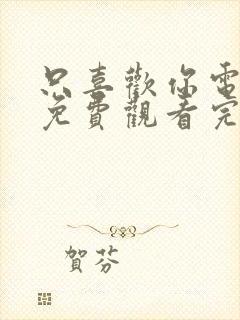 只喜歡你電
免費觀看完
賀芬